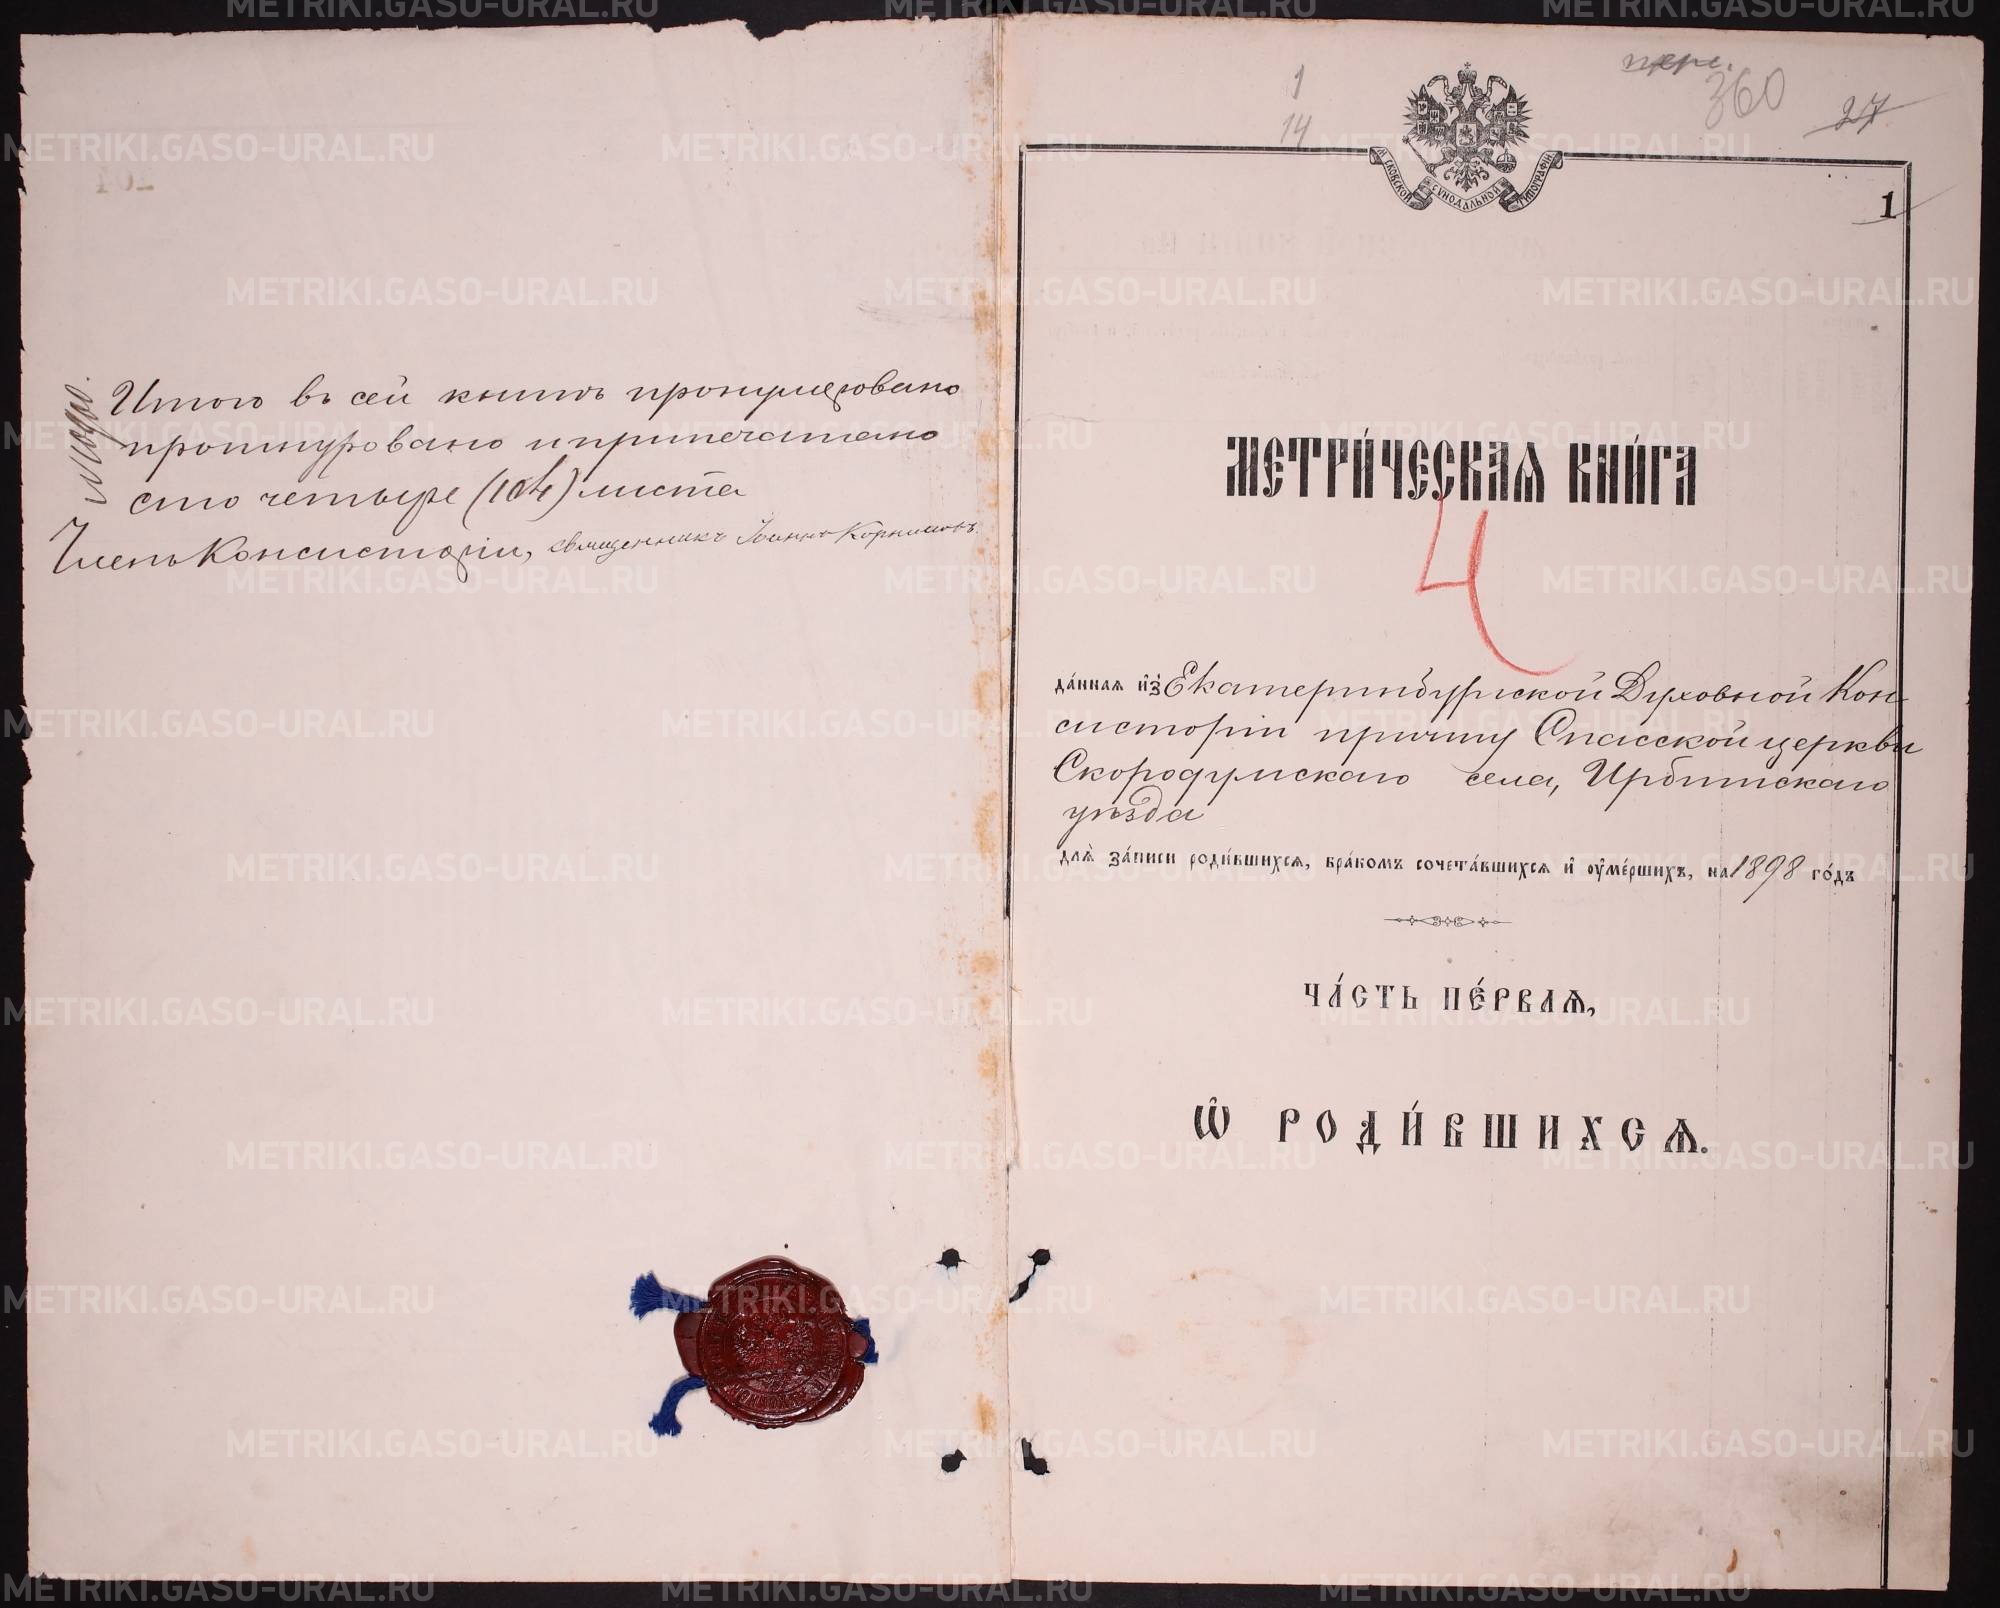 Итого въ сей книгѣ пронумеровано
прошнуровано и припечатано
сто четыре (104) листа
Членъ Консисторіи, священникъ Іоаннъ Корниловъ.
1
14
360
27
МОСКОВСКОЙ СѴНОДАЛЬНОЙ ТИПОГРАФІИ
1
МЕТРИ́ЧЕСКАѦ КНИ́ГА
4
да́ннаѧ и҆з̾ Екатеринбургской Духовной Кон
систоріи причту Спасской церкви
Скородумскаго села, Ирбитскаго
уѣзда
длѧ̀ за́писи роди́вшихсѧ, бра́комъ сочета́вшихсѧ и҆ ᲂу҆ме́ршихъ, на 1898 го́дъ
ЧА́СТЬ ПЕ́РВАѦ,
Ѽ РОДИ́ВШИХСѦ.
METRIKI.GASO-URAL.RU